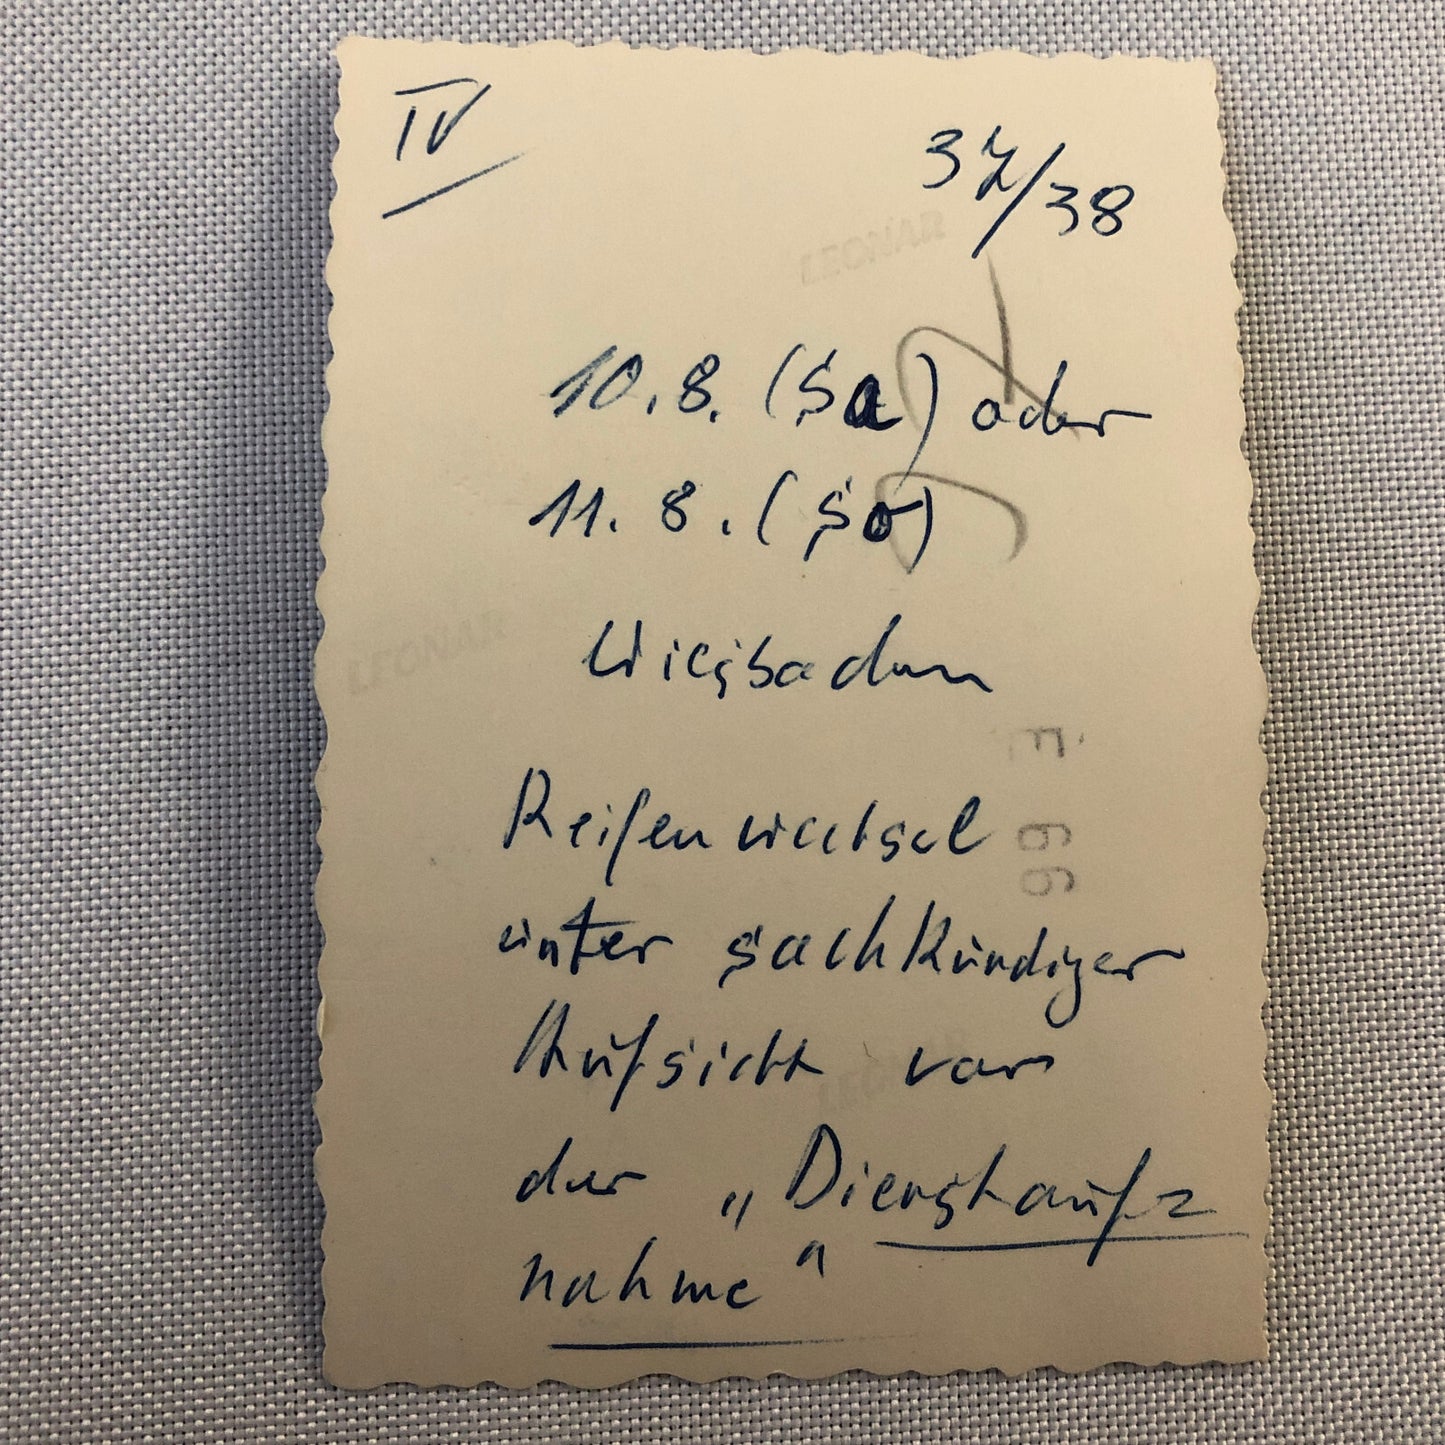 IV
37/38
LEONAR
10.8. (Sa) oder
11.8. (So)
LEONAR
Wiesbaden
E 66
Reifenwechsel
unter sachkundiger
Aufsicht vor
LEONAR
der „Dienstauf=
nahme“